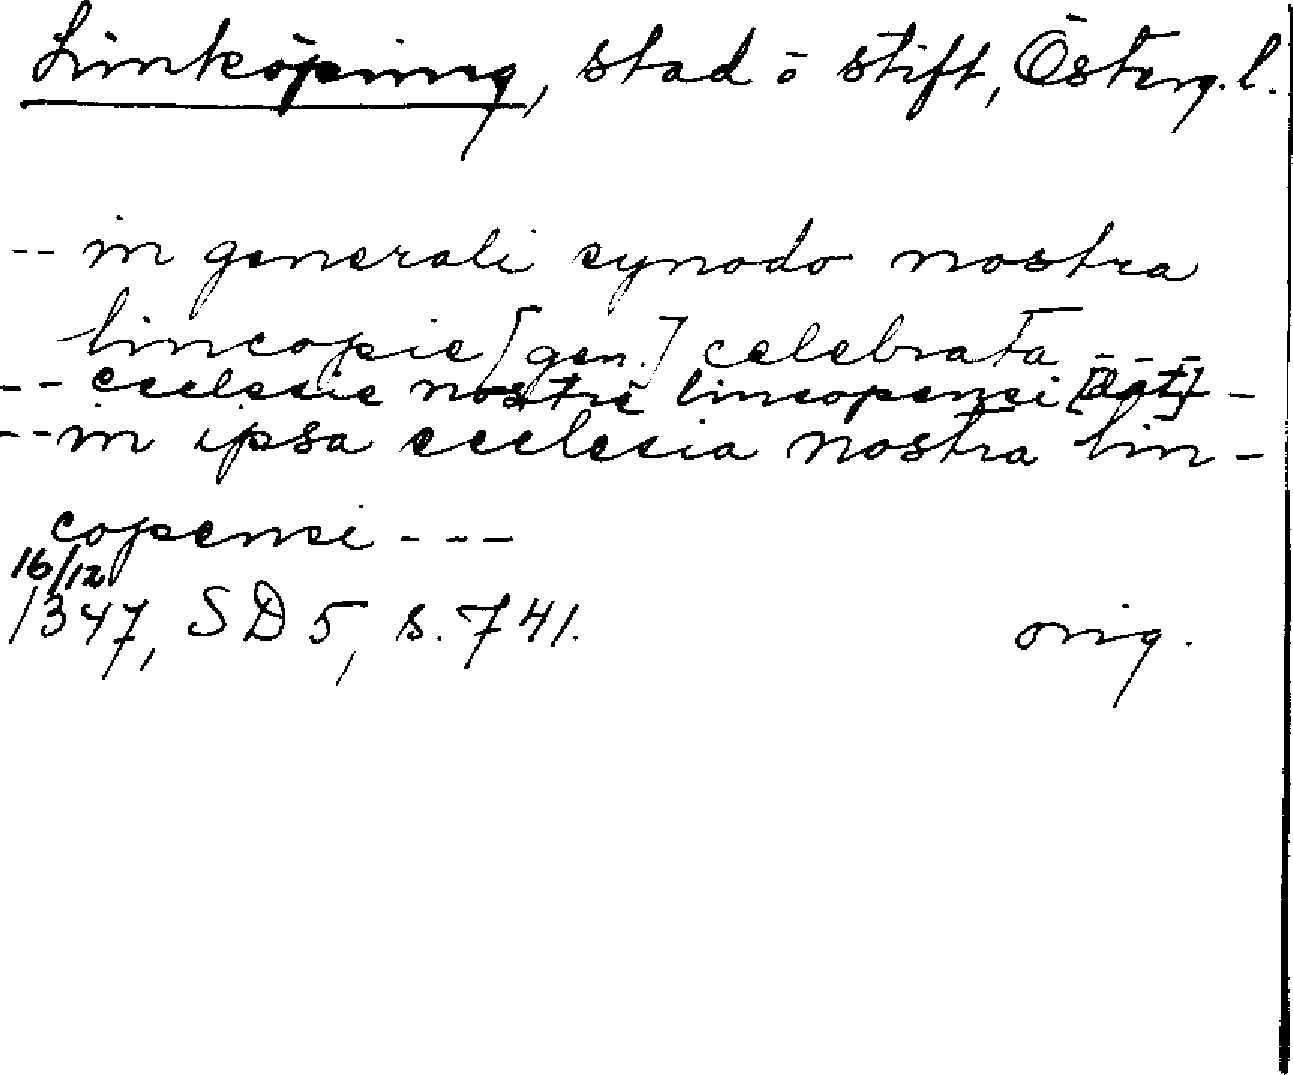 Linköping, stad o stift, Österg. l.
-- in generali synodo nostra
lincopie [gen.] celebrata ---
-- ecclesie nostre lincopensi [dat] -
-- in ipsa ecclesia nostra lin-
copensi ---
16/12
1347, SD 5, s. 741. orig.